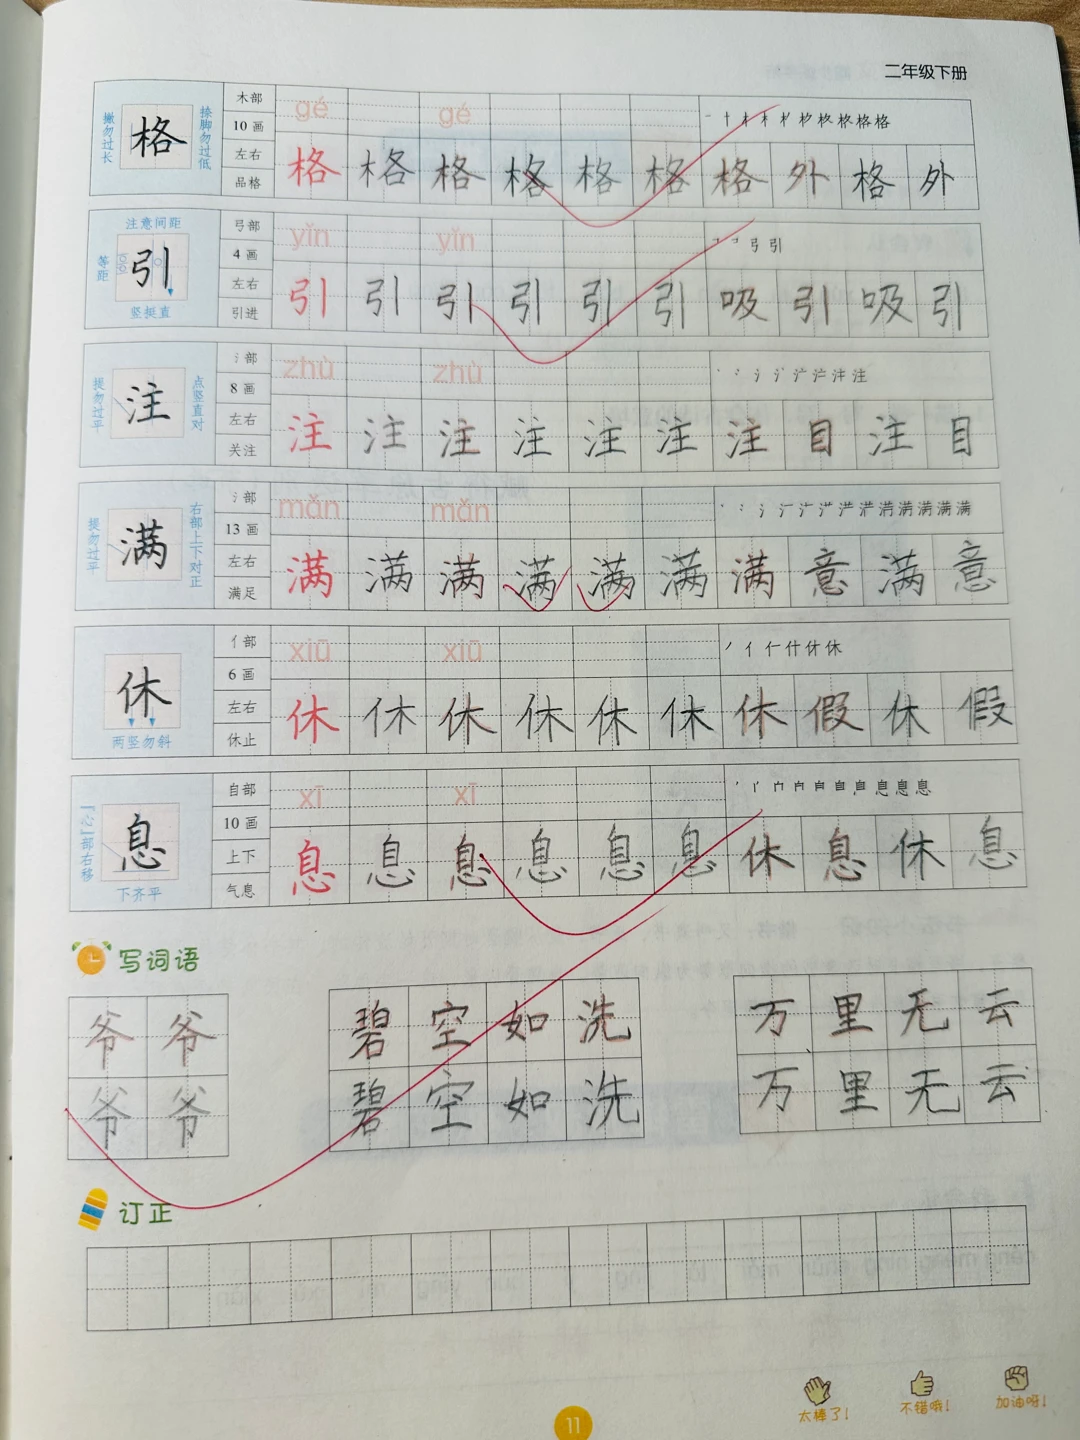 二年级下册
撇勿过长 格 捺脚勿过低
木部 gé gé 一 十 才 木 朾 杦 柊 柊 格 格
10 画
左右 格 格 格 格 格 格 格 外 格 外
品格
注意间距
等距 引
竖挺直
弓部 yǐn yǐn ㇕ コ 弓 引
4 画
左右 引 引 引 引 引 引 吸 引 吸 引
引进
提勿过平 注 点竖直对
氵部 zhù zhù
8 画
左右 注 注 注 注 注 注 注 目 注 目
关注
提勿过平 满 右部上下对正
氵部 mǎn mǎn
13 画
左右 满 满 满 满 满 满 满 意 满 意
满足
休
两竖勿斜
亻部 xiū xiū 丿 亻 仁 什 休 休
6 画
左右 休 休 休 休 休 休 休 假 休 假
休止
“心”部右移 息
下齐平
自部 xī xī
10 画
上下 息 息 息 息 息 息 休 息 休 息
气息
写词语
爷 爷 碧 空 如 洗 万 里 无 云
爷 爷 碧 空 如 洗 万 里 无 云
订正
太棒了! 不错哦! 加油呀!
11